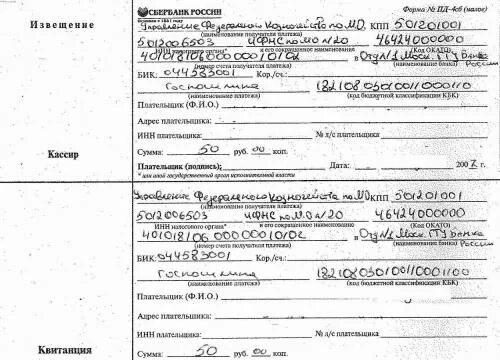 Извещение
СБЕРБАНК РОССИИ
Форма № ПД-4сб (налог)
Основан в 1841 году
Управление Федерального Казначейства по МО КПП 501201001
(наименование получателя платежа)
5012006503 ИФНС по МО №20 46424000000
ИНН налогового органа* и его сокращенное наименование (Код ОКАТО)
40101810600000010102 в Отд №1 Моск. ГТУ Банка России
(номер счета получателя платежа) (наименование банка)
БИК: 044583001 Кор./сч.:
Госпошлина 18210803010011000110
(наименование платежа) (код бюджетной классификации КБК)
Плательщик (Ф.И.О.)
Адрес плательщика:
ИНН плательщика: № л/с плательщика:
Сумма: 50 руб. 00 коп.
Кассир
Плательщик (подпись): Дата: 2007 г.
* или иной государственный орган исполнительной власти
Управление Федерального Казначейства по МО КПП 501201001
(наименование получателя платежа)
5012006503 ИФНС по МО №20 46424000000
ИНН налогового органа* и его сокращенное наименование (Код ОКАТО)
40101810600000010102 в Отд №1 Моск. ГТУ Банка России
(номер счета получателя платежа) (наименование банка)
БИК: 044583001 Кор./сч.:
Госпошлина
(наименование платежа) (код бюджетной классификации КБК)
Плательщик (Ф.И.О.)
Адрес плательщика:
ИНН плательщика: № л/с плательщика:
Квитанция
Сумма: 50 руб. 00 коп.